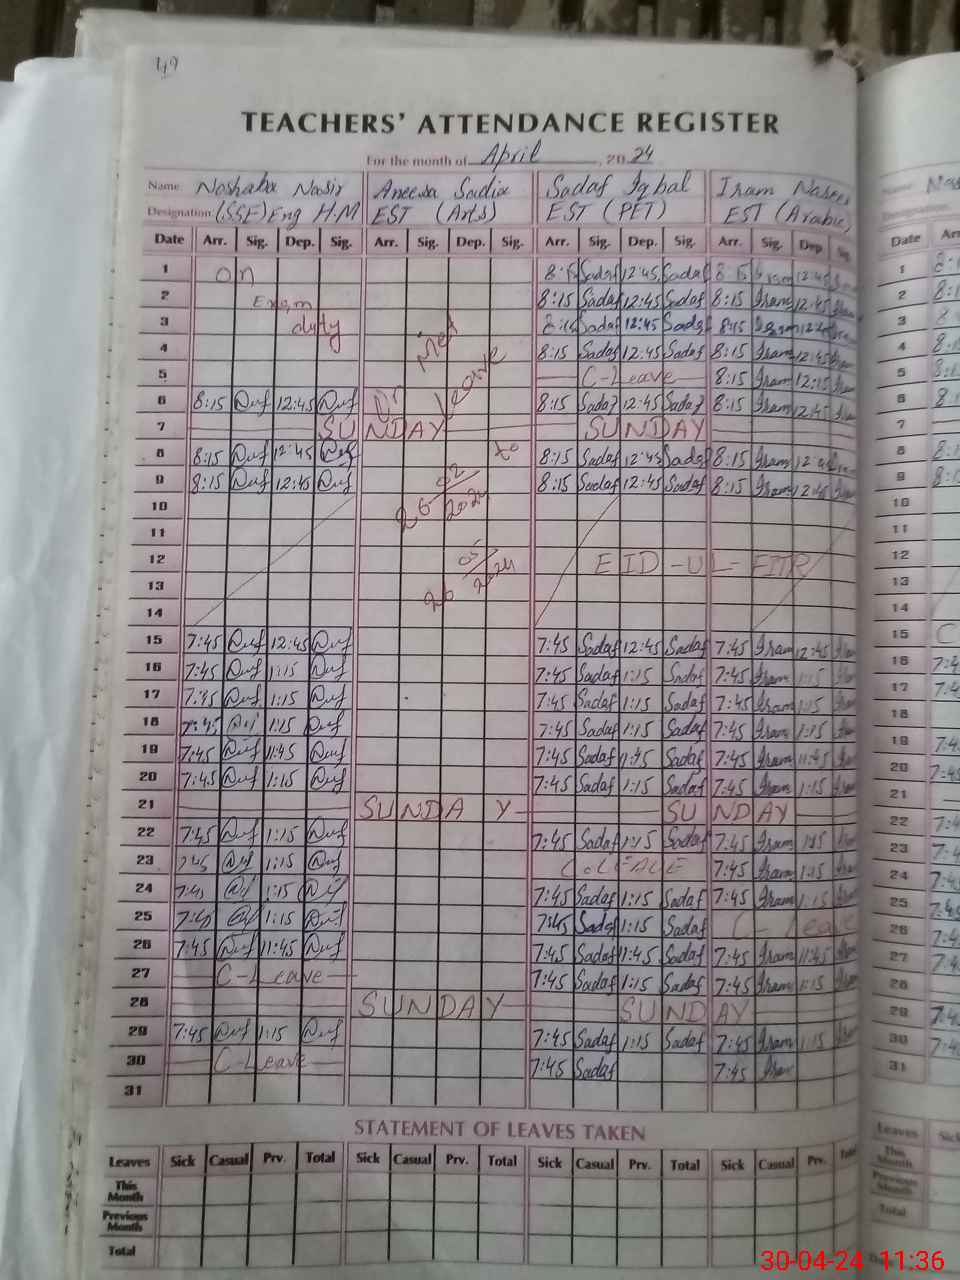 49
TEACHERS' ATTENDANCE REGISTER
For the month of April, 2024
Name Noshaba Nasir Aneesa Sadia Sadaf Iqbal Iram Naseer Name
Designation (SSE) Eng H.M EST (Arts) EST (PET) EST (Arabic)
Date Arr. Sig. Dep. Sig. Arr. Sig. Dep. Sig. Arr. Sig. Dep. Sig. Arr. Sig. Dep Sig Date
1 On 8:15 Sadaf 12:45 Sadaf 8:15 Iram 12:45 1
2 Exam 8:15 Sadaf 12:45 Sadaf 8:15 Iram 12:45 Iram 2
3 duty 8:15 Sadaf 12:45 Sadaf 8:15 Iram 12:45 3
4 8:15 Sadaf 12:45 Sadaf 8:15 Iram 12:45 Iram 4
5 C-Leave 8:15 Iram 12:15 Iram 5
6 8:15 12:45 8:15 Sadaf 12:45 Sadaf 8:15 Iram 12:45 Iram 6
On Leave
7 SUNDAY SUNDAY 7
8 8:15 12:45 to 8:15 Sadaf 12:45 Sadaf 8:15 Iram 12:45 8
9 8:15 12:45 26-02 2024 8:15 Sadaf 12:45 Sadaf 8:15 Iram 12:45 Iram 9
10 10
11 11
12 26 05 2024 EID-UL-FITR 12
13 13
14 14
15 7:45 12:45 7:45 Sadaf 12:45 Sadaf 7:45 Iram 12:45 Iram 15
16 7:45 1:15 7:45 Sadaf 1:15 Sadaf 7:45 Iram 1:15 Iram 16
17 7:45 1:15 7:45 Sadaf 1:15 Sadaf 7:45 Iram 1:15 Iram 17
18 7:45 1:15 7:45 Sadaf 1:15 Sadaf 7:45 Iram 1:15 Iram 18
19 7:45 11:45 7:45 Sadaf 11:45 Sadaf 7:45 Iram 11:45 Iram 19
20 7:45 1:15 7:45 Sadaf 1:15 Sadaf 7:45 Iram 1:15 Iram 20
21 SUNDAY SUNDAY 21
22 7:45 1:15 7:45 Sadaf 1:15 Sadaf 7:45 Iram 1:15 Iram 22
23 7:45 1:15 C-LEAVE 7:45 Iram 1:15 Iram 23
24 7:45 1:15 7:45 Sadaf 1:15 Sadaf 7:45 Iram 1:15 Iram 24
25 7:45 1:15 7:45 Sadaf 1:15 Sadaf C-Leave 25
26 7:45 11:45 7:45 Sadaf 11:45 Sadaf 7:45 Iram 11:45 Iram 26
27 C-Leave 7:45 Sadaf 1:15 Sadaf 7:45 Iram 1:15 Iram 27
28 SUNDAY SUNDAY 28
29 7:45 1:15 7:45 Sadaf 1:15 Sadaf 7:45 Iram 1:15 Iram 29
30 C-Leave 7:45 Sadaf 7:45 Iram 30
31 31
STATEMENT OF LEAVES TAKEN
Leaves Sick Casual Prv. Total Sick Casual Prv. Total Sick Casual Prv. Total Sick Casual Prv. Total Leaves
This Month This Month
Previous Month Previous Month
Total Total
30-04-24 11:36